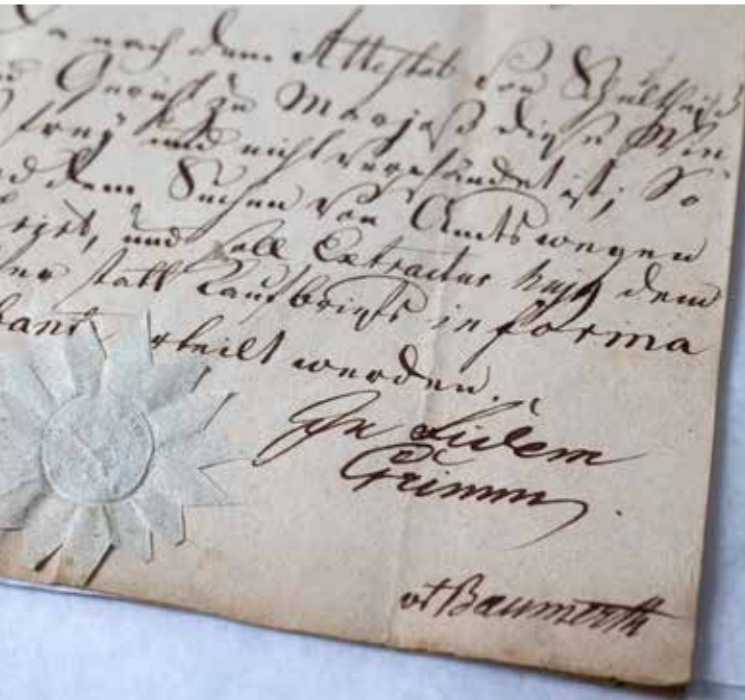 nach dem Attestat von Schultheiß
Gericht zu Marjoß diese Wie
frey und nicht verpfändet ist; So
dem Suchen von Amts wegen
und soll Extractus hujus dem
statt Kaufbriefs in forma
ertheilt werden.
In fidem
Grimm.
vt Baumerth